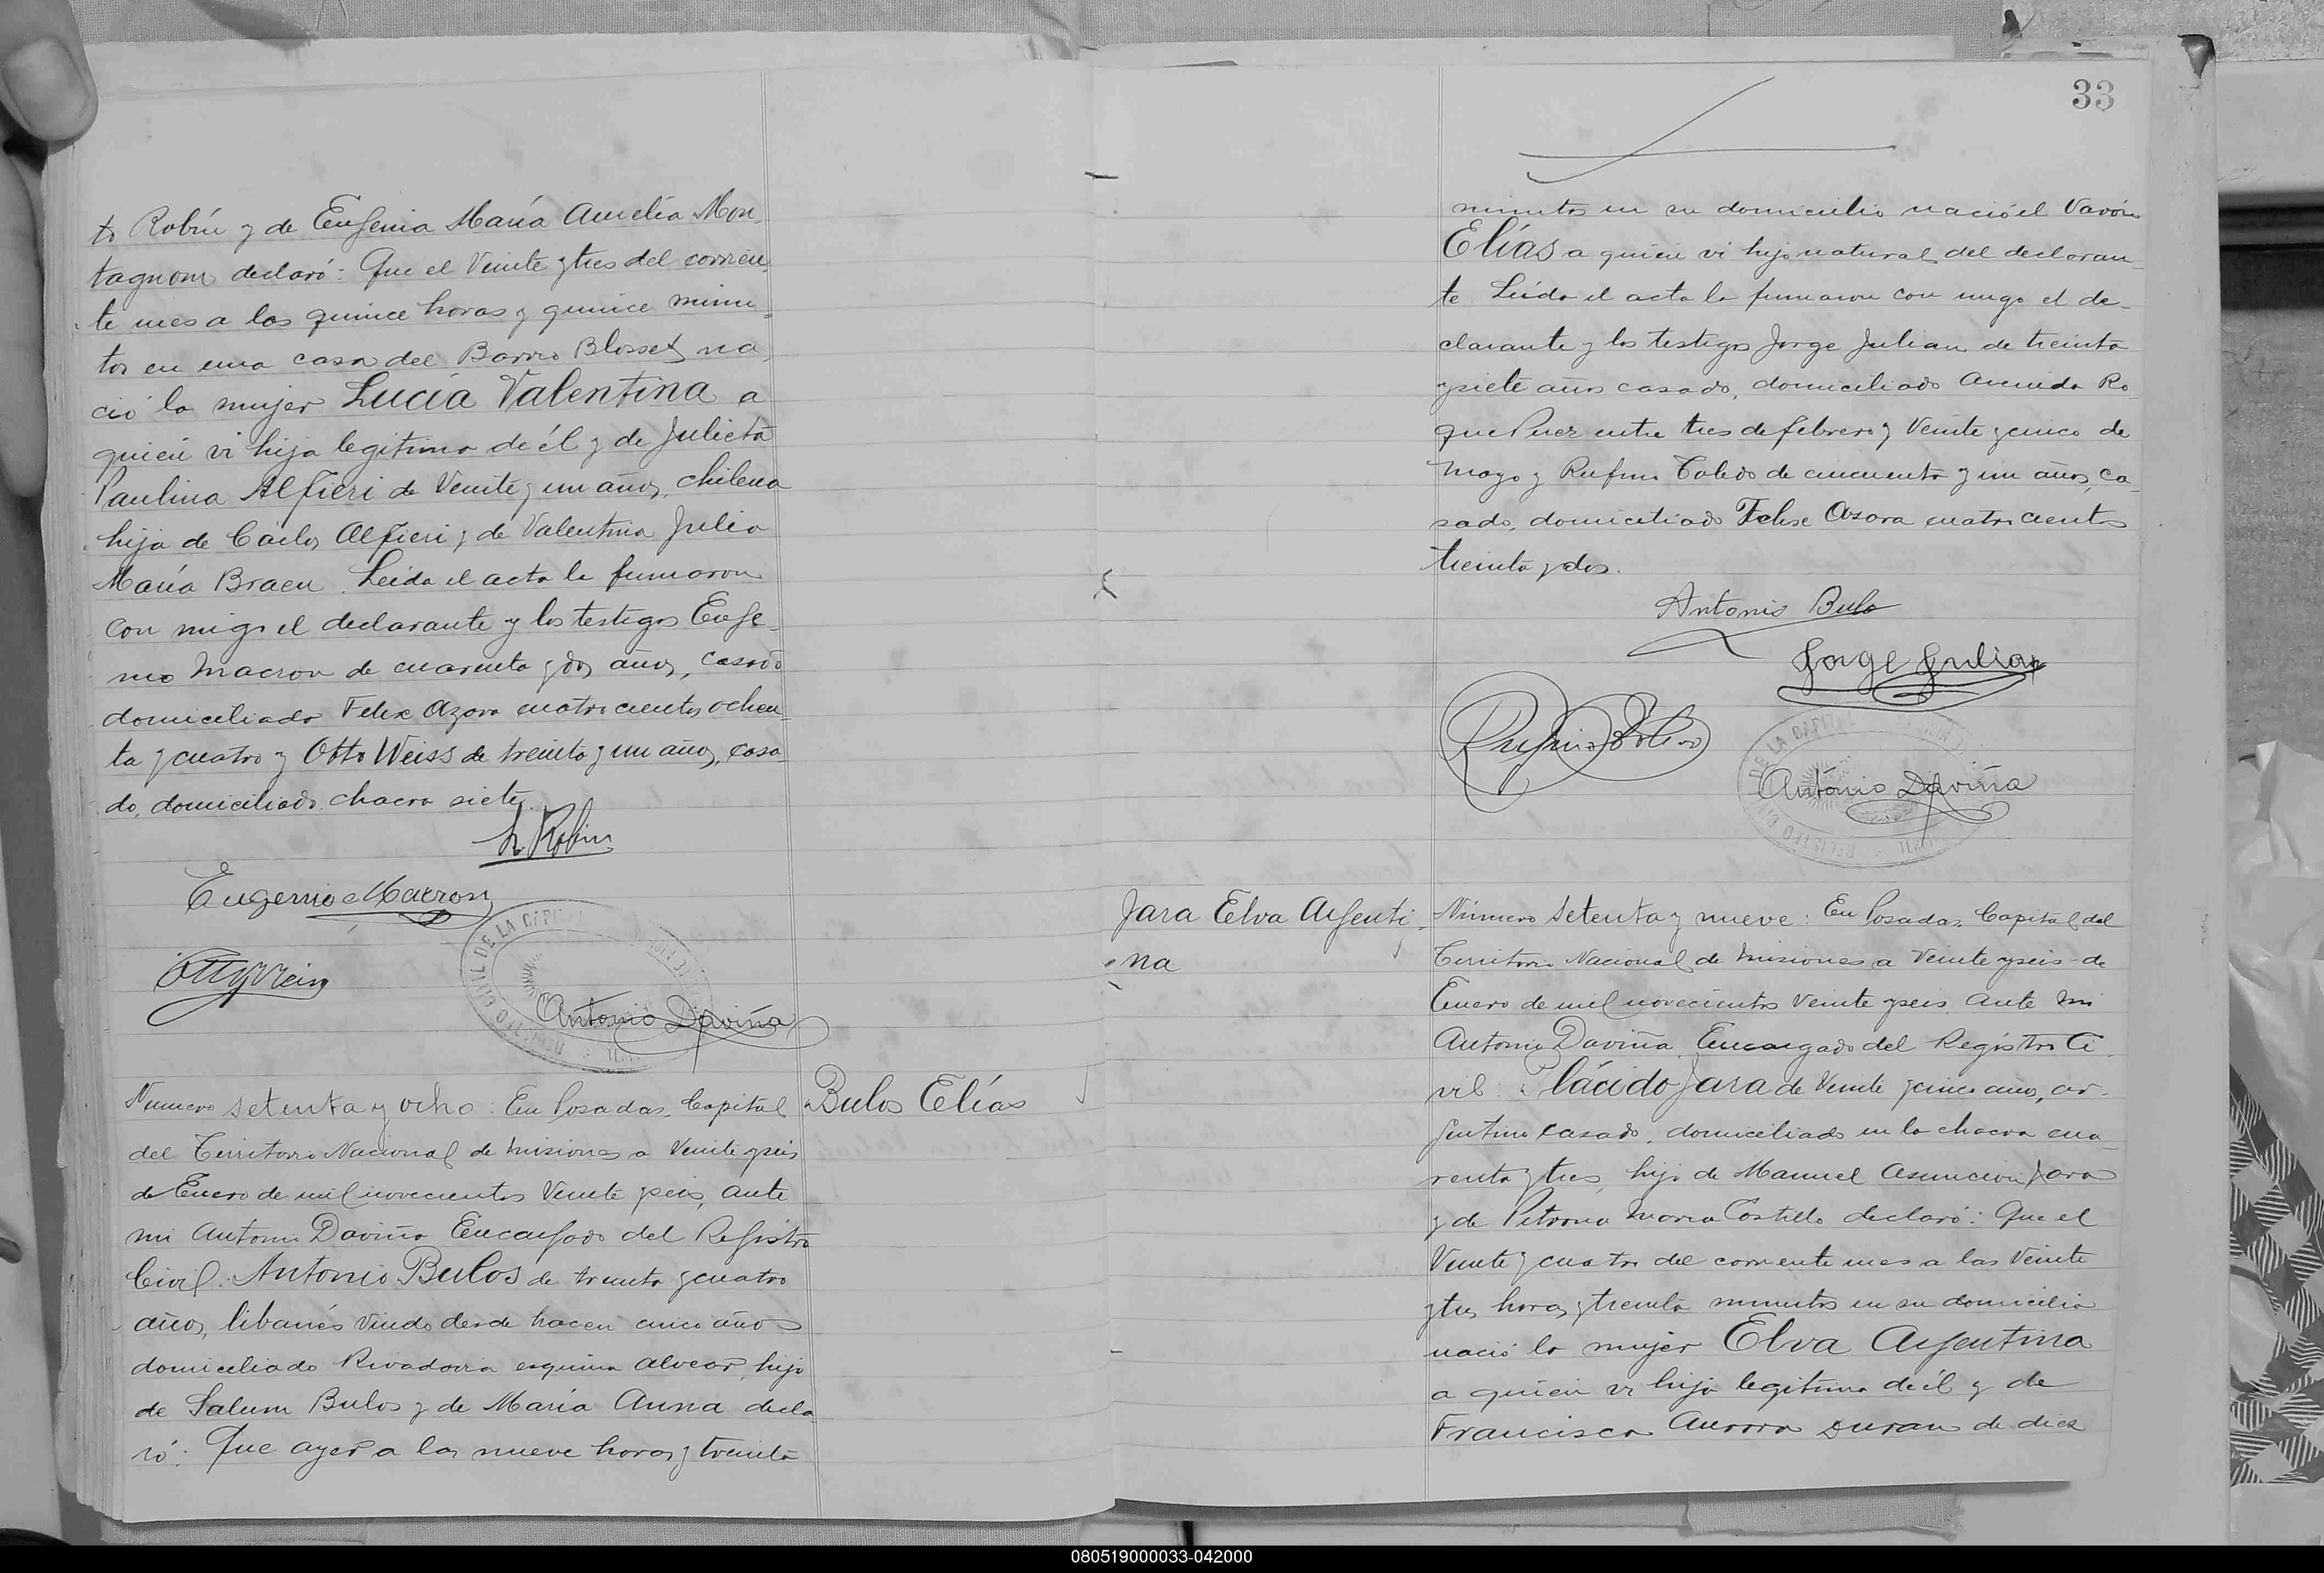 to Robín y de Eugenia María Aurelia Mon-
tagnom declaró: Que el Veinte y tres del corrien-
te mes a las quince horas y quince minu-
tos en una casa del Barrio Blosset na-
ció la mujer Lucía Valentina a
quien vi hija legitima de él y de Julieta
Paulina Alfieri de Veinte y un años, chilena
hija de Cárlos Alfieri y de Valentina Julia
María Braen. Leida el acta la firmaron
con migo el declarante y los testigos Euge-
nio Macron de cuarenta y dos años, casado
domiciliado Felix Azara cuatrocientos ochen-
ta y cuatro y Otto Weiss de treinta y un años, casa-
do, domiciliado chacra siete.
L. Robin
Eugenio Macron
DE LA CAPITAL
Antonio Daviña
Numero setenta y ocho: En Posadas, Capital
Bulos Elías
del Territorio Nacional de Misiones a Veinte y seis
de Enero de mil novecientos Veinte y seis, ante
mi Antonio Daviña Encargado del Registro
Civil: Antonio Bulos de treinta y cuatro
años, libanés viudo desde hacen cinco años
domiciliado Rivadavia esquina Alvear, hijo
de Salum Bulos y de María Anna decla
ró: Que ayer a las nueve horas y treinta
33
minutos en su domicilio nació el Varón
Elías a quien vi hijo natural del declaran-
te. Leida el acta la firmaron con migo el de-
clarante y los testigos Jorge Julian de treinta
y siete años casado, domiciliado Avenida Ro-
que Perez entre tres de febrero y Veinte y cinco de
Mayo y Rufino Toledo de cincuenta y un años, ca-
sado, domiciliado Felix Azara cuatrocientos
treinta y dos.
Antonio Bulo
Jorge Julian
Rufino Toledo
DE LA CAPITAL
Antonio Daviña
Jara Elva Argenti-
na
Número setenta y nueve: En Posadas, Capital del
Territorio Nacional de Misiones a Veinte y seis de
Enero de mil novecientos Veinte y seis, ante mi
Antonio Daviña Encargado del Registro Ci-
vil: Plácido Jara de Veinte y cinco años, ar-
gentino casado, domiciliado en la chacra cua-
renta y tres, hijo de Manuel Asuncion Jara
y de Petrona Maria Castillo declaró: Que el
Veinte y cuatro del corriente mes a las Veinte
y tres horas y treinta minutos en su domicilio
nació la mujer Elva Argentina
a quien vi hija legitima de él y de
Francisca Aurora Duran de diez
080519000033-042000